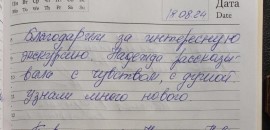 18.08.24
Дата
Date
Благодарим за интересную
экскурсию. Надежда рассказы-
вала с чувством, с душой
Узнали много нового